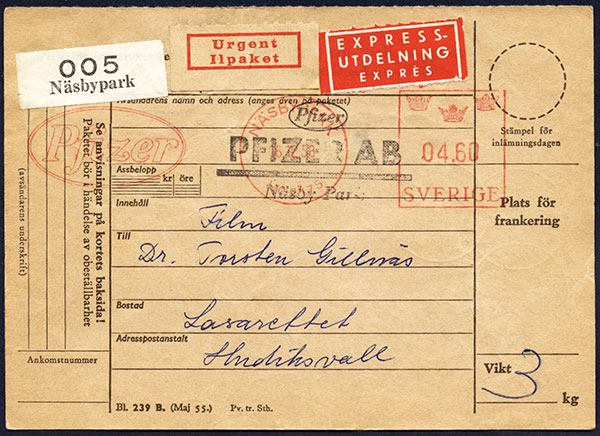 005
Näsbypark
Urgent
Ilpaket
EXPRESS-
UTDELNING
EXPRÈS
Avsändarens namn och adress (anges även på paketet)
Pfizer
Pfizer
PFIZER AB
Näsby Park
04.60
SVERIGE
Stämpel för
inlämningsdagen
Plats för
frankering
Assbelopp
kr
öre
Innehåll
Film
Till
Dr. Torsten Gillnäs
Bostad
Lasarettet
Adresspostanstalt
Hudiksvall
Vikt
3
kg
Ankomstnummer
(avsändarens underskrift)
Se anvisningar på kortets baksida!
Paketet bör i händelse av obeställbarhet
Bl. 239 B. (Maj 55.) Pv. tr. Sth.